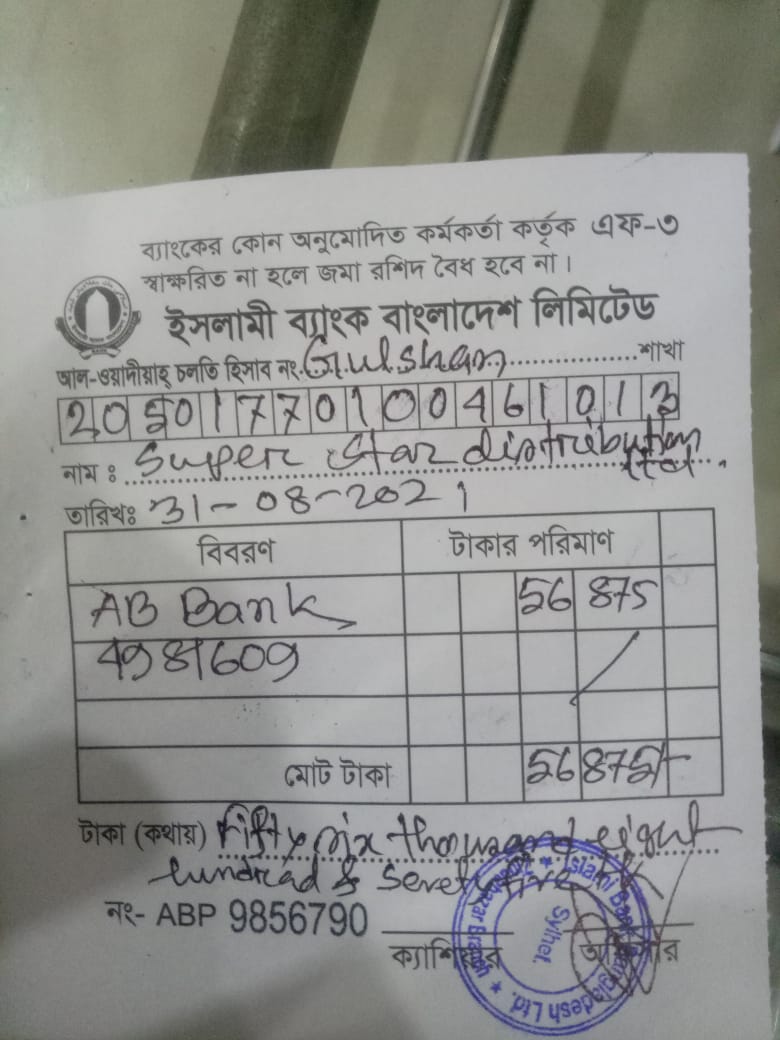 ব্যাংকের কোন অনুমোদিত কর্মকর্তা কর্তৃক এফ-৩
স্বাক্ষরিত না হলে জমা রশিদ বৈধ হবে না।
ইসলামী ব্যাংক বাংলাদেশ লিমিটেড
আল-ওয়াদীয়াহ্ চলতি হিসাব নং. Gulshan শাখা
20501770100461013
নাম : Super Star distribution Ltd.
তারিখঃ 31-08-2021
বিবরণ টাকার পরিমাণ
AB Bank 56 875
4981609
মোট টাকা 56 875/-
টাকা (কথায়) Fifty six thousand eight
hundrad & seventy five
নং- ABP 9856790
ক্যাশিয়ার অফিসার
Islami Bank Bangladesh Ltd.
Sylhet.